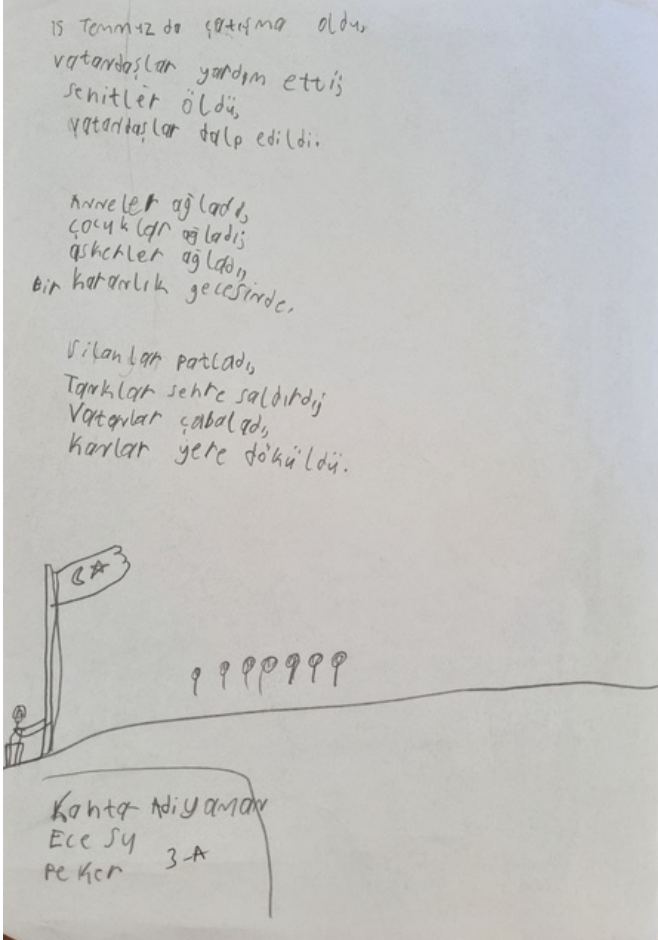 15 Temmuz da çatışma oldu,
vatandaşlar yardım etti;
Şehitler öldü,
vatandaşlar dalp edildi.
Anneler ağladı,
çocuklar ağladı;
askerler ağladı,
Bir karanlık gecesinde.
Silahlar patladı,
Tanklar şehre saldırdı;
Vatanlar çabaladı,
Kanlar yere döküldü.
Kahta Adıyaman
Ece Su
Peker 3-A